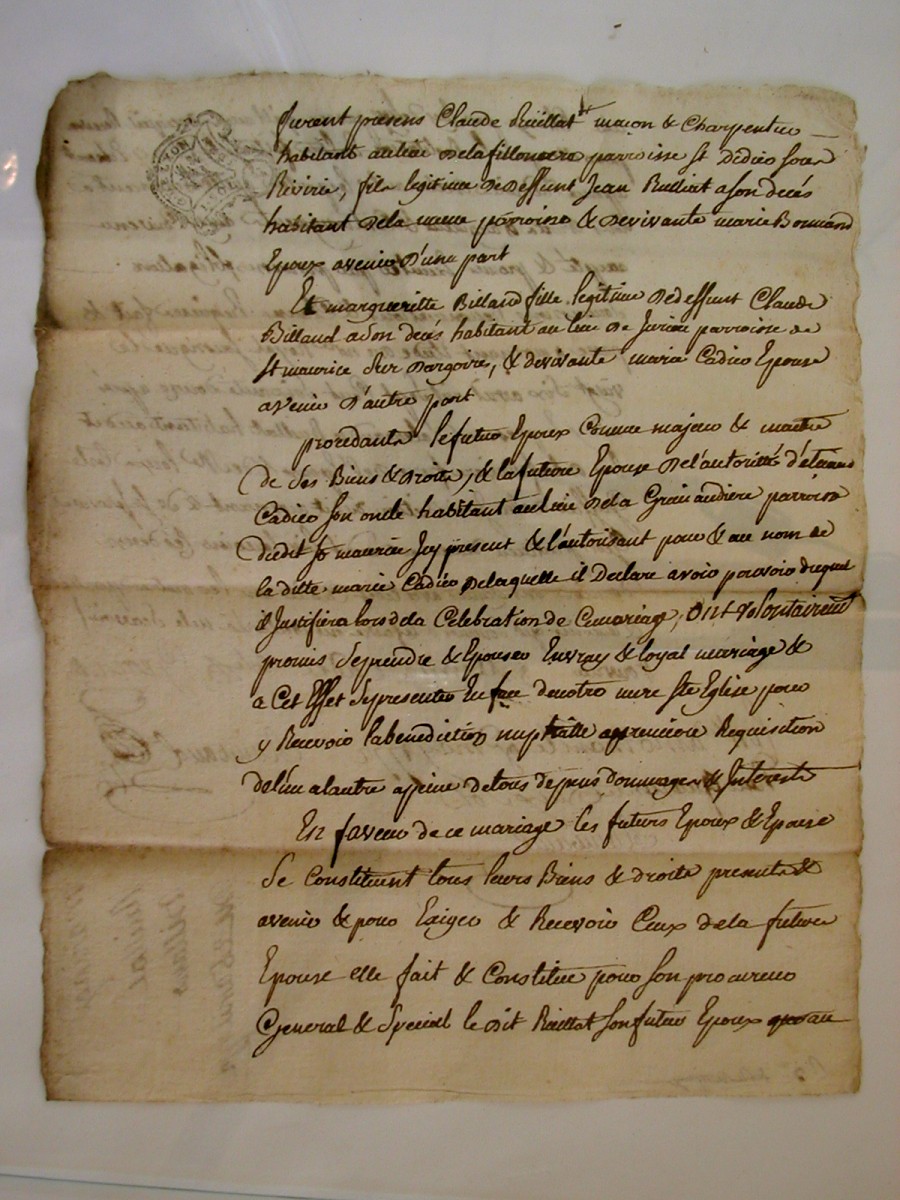 furent presens Claude Ruillat mason & Charpentier
habitant au lieu de la fillonniere parroisse st Didier sous
Riverie, fils legitime de deffunt Jean Rulliat a son decés
habitant de la meme parroisse & de vivante marie Bonnand
Epoux avenir d'une part
Et margueritte Billand fille legitime de deffunt Claude
Billand a son decés habitant au lieu de Jurieu parroisse de
st maurice sur dargoire, & de vivante marie Cadier Epouse
avenir d'autre part
procedants le futur Epoux Comme majeur & maitre
de ses Biens & droits, & la future Epouse de l'autorité d'étienne
Cadier son oncle habitant au lieu de la parroisse
dudit St maurice Icy present & l'autorisant pour & au nom de
la ditte marie Cadier de laquelle il Declare avoir pouvoir duquel
il Justifiera lors de la Celebration de Ce mariage, ont volontairement
promis se prendre & Epouser En vray & loyal mariage &
a Cet Effet se presenter En face de notre mere Ste Eglise pour
y Recevoir la benediction nuptialle a premiere Requisition
de l'un a l'autre a peine de tous depens dommages & Interests
En faveur de ce mariage les futurs Epoux & Epouse
se Constituent tous leurs Biens & droits presents &
avenir & pour Exiger & Recevoir Ceux de la future
Epouse elle fait & Constitue pour son procureur
General & Special le dit Ruillat son futur Epoux